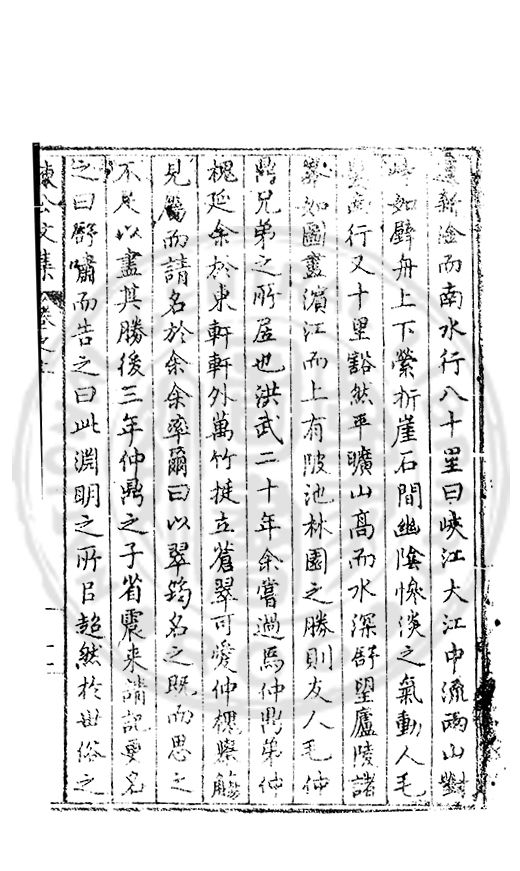 新淦而南水行八十里曰峽江大江中流兩山對
峙如壁舟上下縈折崖石間幽陰慘淡之氣動人毛
髮南行又十里豁然平曠山高而水深舒望廬陵諸
峯如圖畫濵江而上有陂池林園之勝則友人毛仲
鼎兄弟之所居也洪武二十年余嘗過焉仲鼎弟仲
槐延余於東軒軒外萬竹挺立蒼翠可愛仲槐舉觴
見屬而請名於余余率爾曰以翠筠名之既而思之
不足以盡其勝後三年仲鼎之子省震來請記更名
之曰舒嘯而告之曰此淵明之所以超然於世俗之
陳公文集 卷之